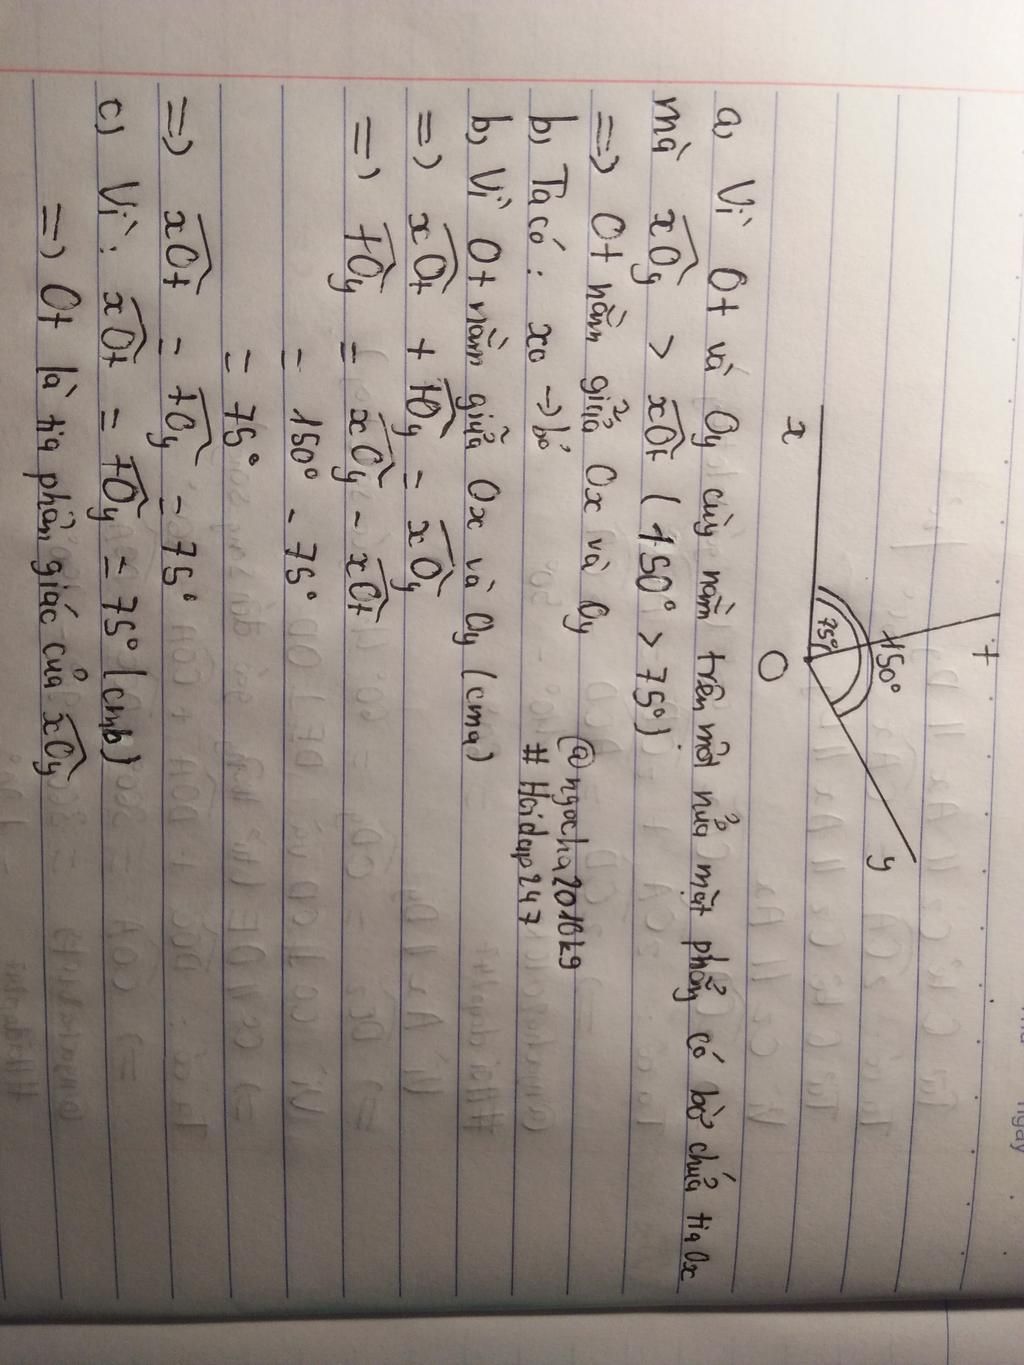 t
150°
75°
x
O
y
a, Vì Ot và Oy cùng nằm trên một nửa mặt phẳng có bờ chứa tia Ox
mà xOy > xOt (150° > 75°)
=> Ot nằm giữa Ox và Oy
@ngocha2010k9
b, Ta có: xo -> bỏ
# Hoidap247
b, Vì Ot nằm giữa Ox và Oy (cma)
=> xOt + tOy = xOy
=> tOy = xOy - xOt
= 150° - 75°
= 75°
=> xOt = tOy = 75°
c, Vì: xOt = tOy = 75° (cmb)
=> Ot là tia phân giác của xOy